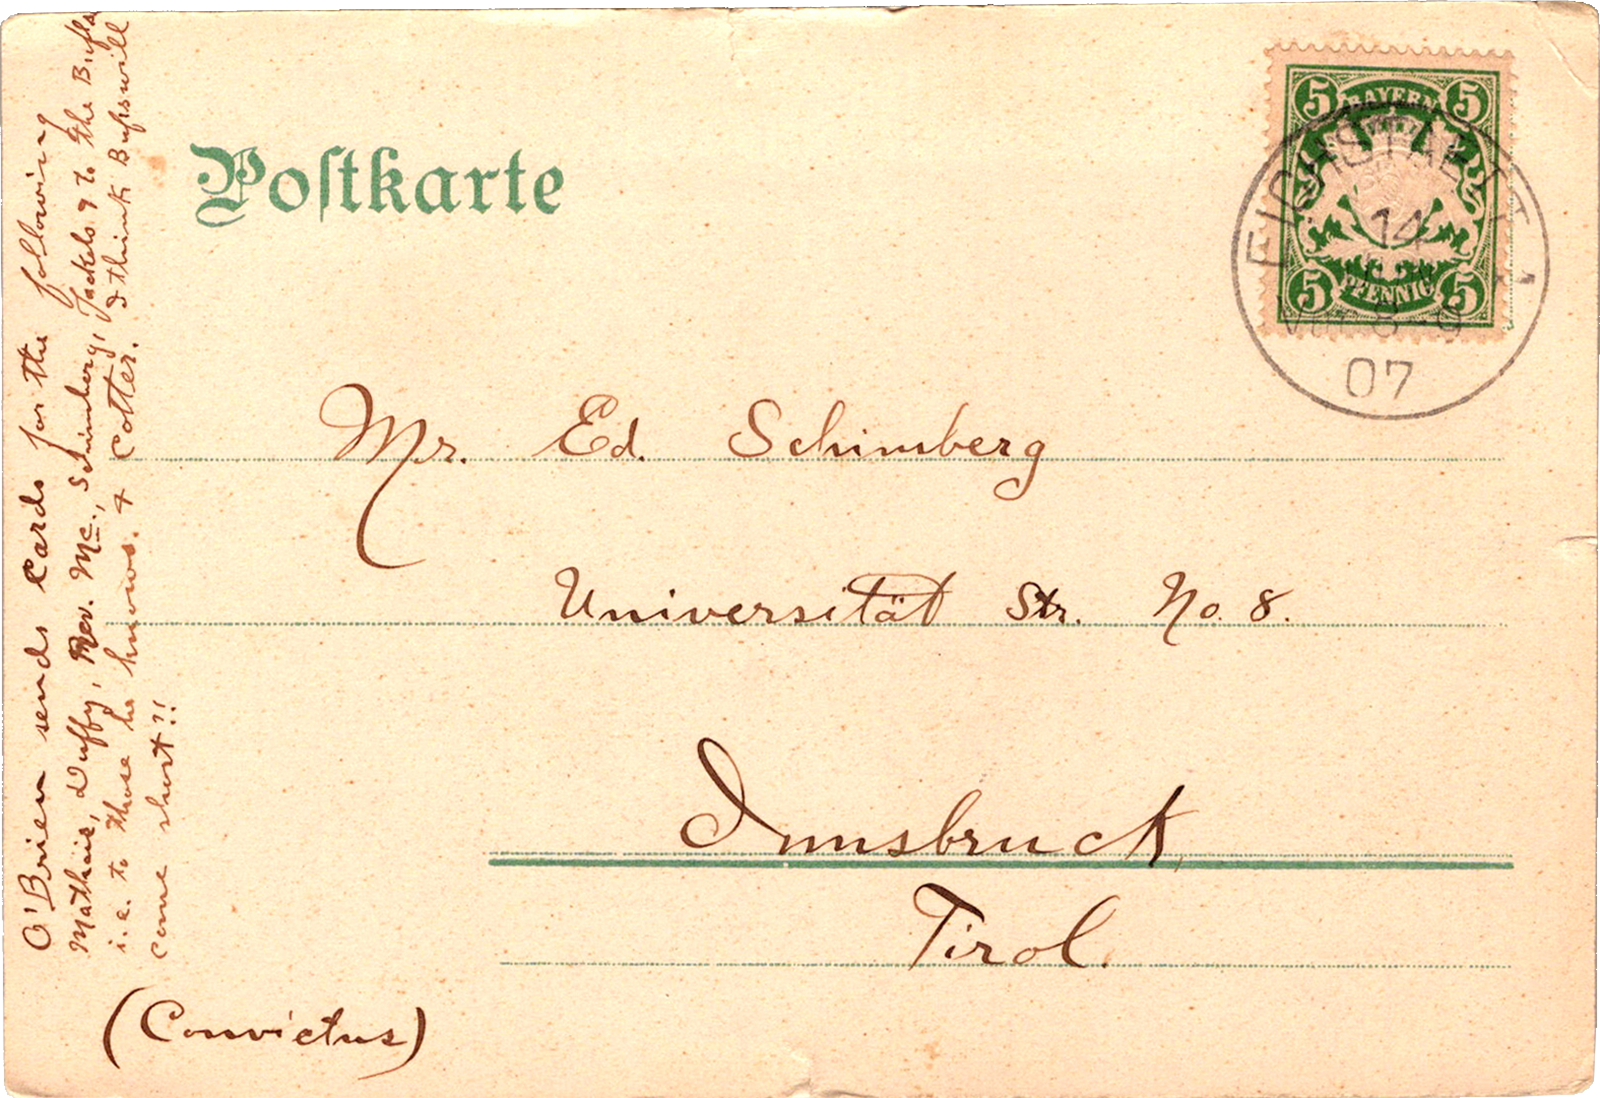 Postkarte
5 BAYERN 5
5 PFENNIG 5
EICHSTAETT
14
8-9
07
Mr. Ed. Schimberg
Universität Str. No. 8.
Innsbruck,
Tirol.
(Convictus)
O'Brien sends cards for the following
Mathais, Duffy, Rev. Mc., Schimberg, Jackels & to the
i.e. to those he knows. & Cotter. I think will
come short?!